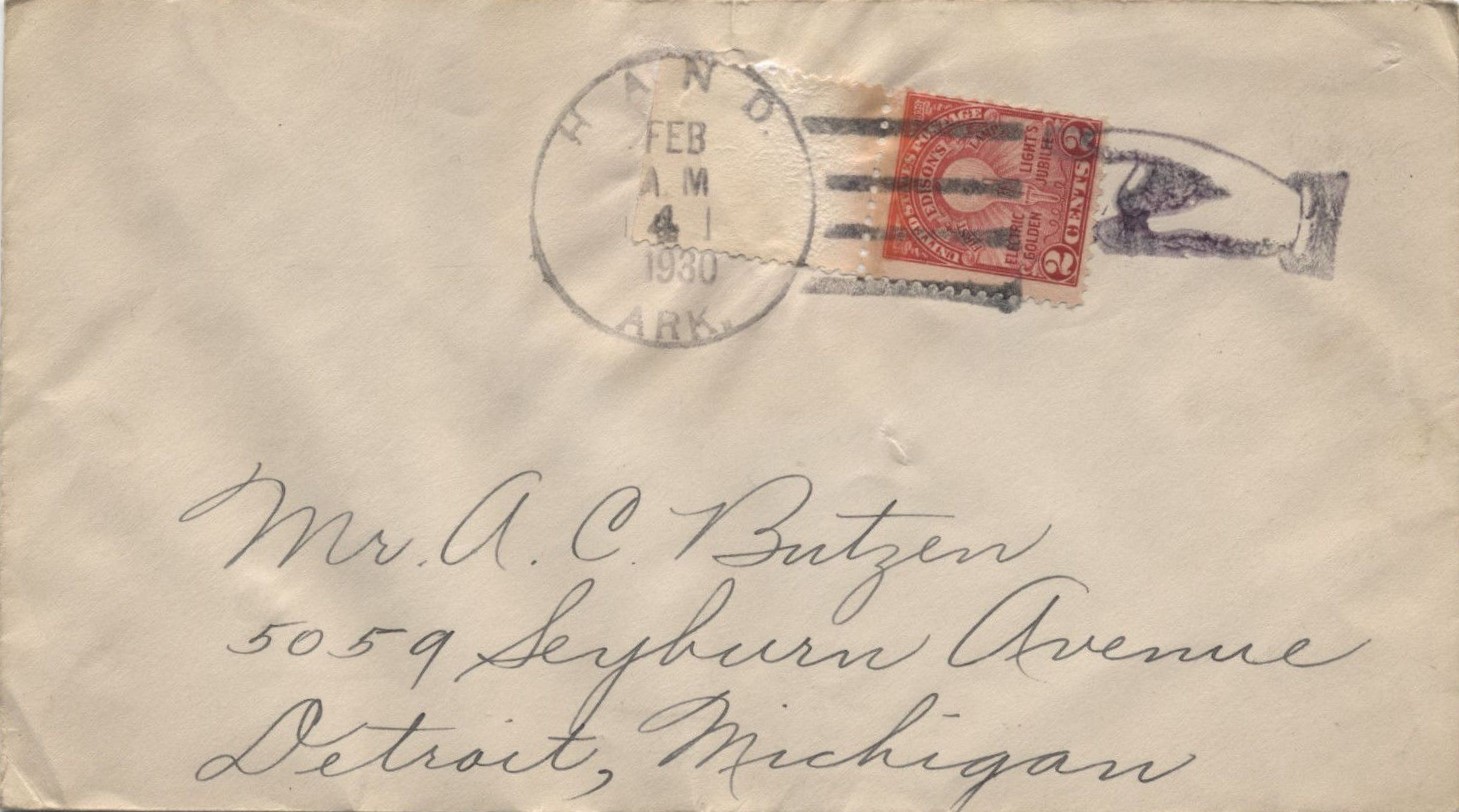 HAND.
FEB
A M
4
1930
ARK.
UNITED STATES POSTAGE
EDISON'S
FIRST LAMP
ELECTRIC LIGHT'S
GOLDEN JUBILEE
2 CENTS 2
Mr. A. C. Butzen
5059 Seyburn Avenue
Detroit, Michigan